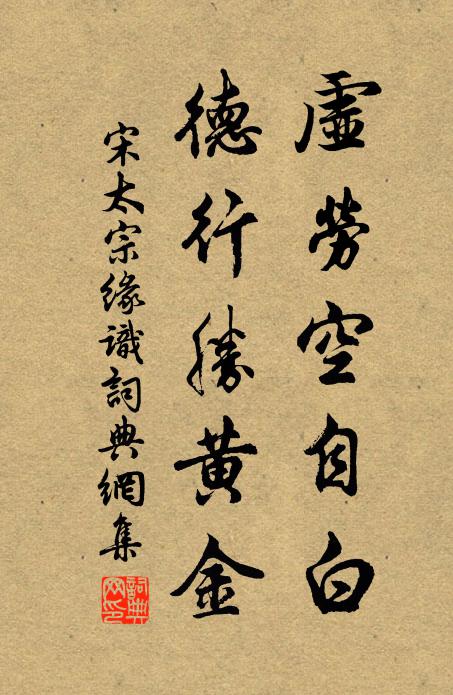 虛勞空自白
德行勝黃金
宋太宗緣識詞典網集
詞典网印